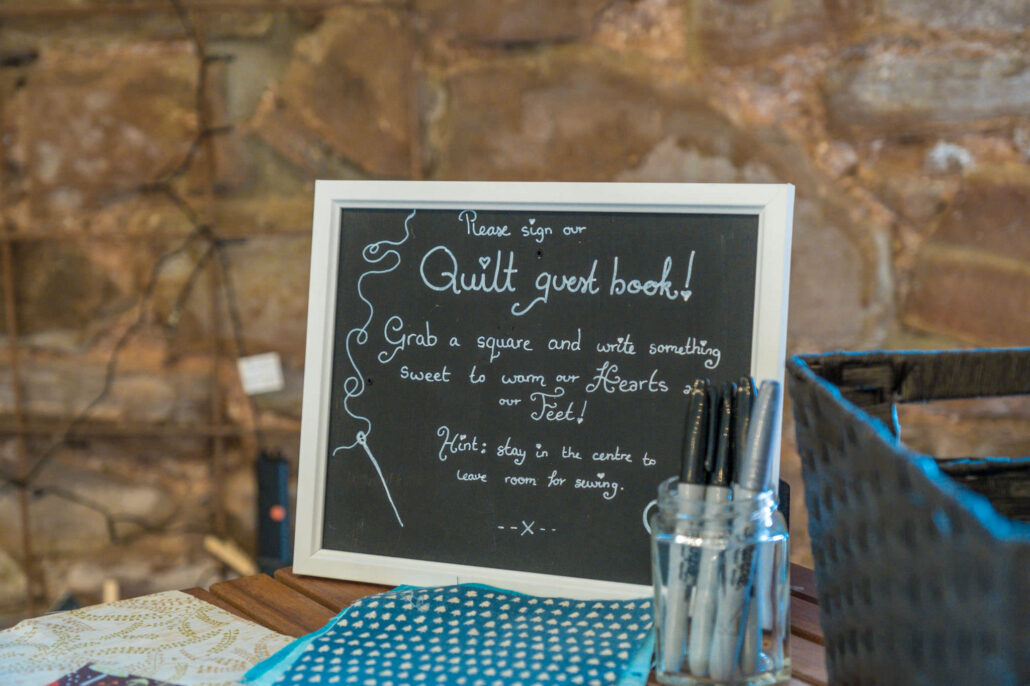 Please sign our
Quilt guest book!
Grab a square and write something
sweet to warm our Hearts
our Feet!
Hint: stay in the centre to
leave room for sewing.
--x--